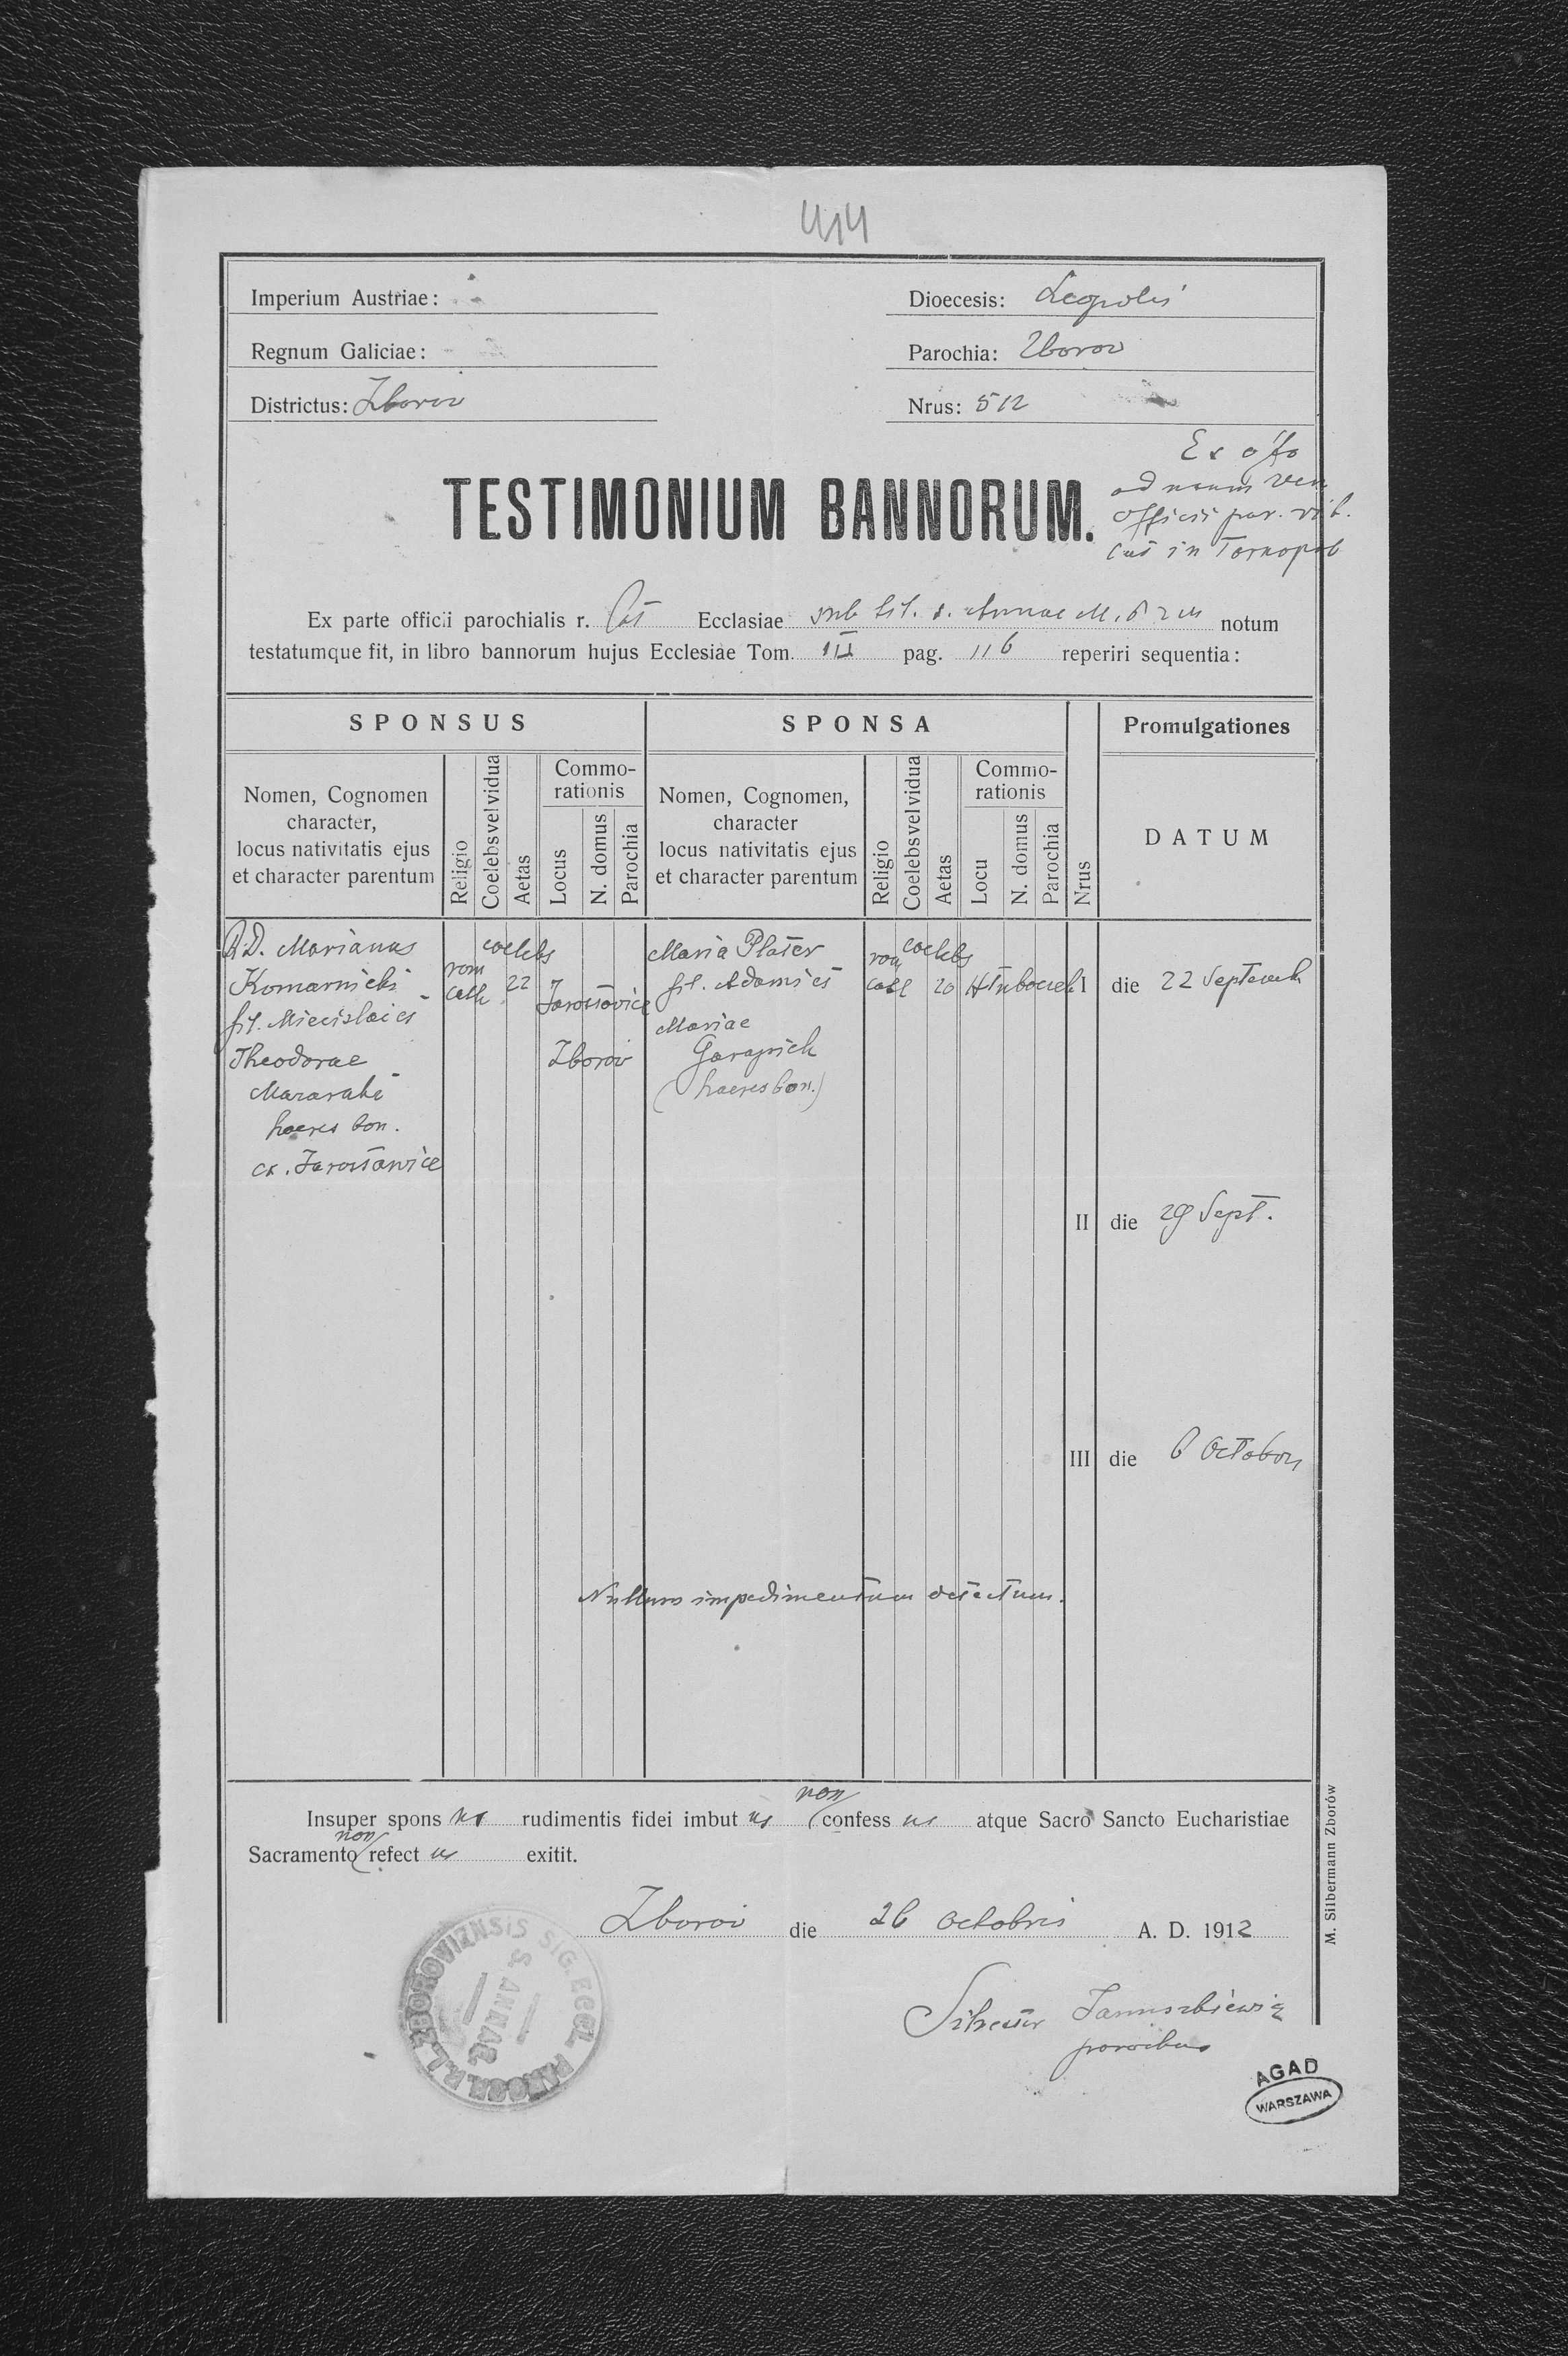 414
Imperium Austriae:
Dioecesis: Leopolis
Regnum Galiciae:
Parochia: Zborov
Districtus: Zborov
Nrus: 512
Ex offo
ad usum Ven.
TESTIMONIUM BANNORUM.
Officii par. rit.
lat in Tarnopol
Ex parte officii parochialis r. lat Ecclasiae sub tit. s. Annae M. notum
testatumque fit, in libro bannorum hujus Ecclesiae Tom. III pag. 116 reperiri sequentia:
SPONSUS
SPONSA
Promulgationes
Nomen, Cognomen
character,
locus nativitatis ejus
et character parentum
Religio
Coelebs vel vidua
Aetas
Commo-
rationis
Locus
N. domus
Parochia
Nomen, Cognomen,
character
locus nativitatis ejus
et character parentum
Religio
Coelebs vel vidua
Aetas
Commo-
rationis
Locu
N. domus
Parochia
Nrus
DATUM
Marianus
Komarnicki
fil. Miecislai et
Theodorae
haeres bon.
ex. Jarosławice
rom
cath
coelebs
22
Jarosławice
Zborov
Maria Plater
fil. Adami et
Mariae
Garapich
(haeres bon.)
rom
cath
coelebs
20
Hłuboczek
I die 22 Septemb
II die 29 Sept.
III die 6 Octobris
Nullum impedimentum detectum.
non
Insuper spons us rudimentis fidei imbut us confess us atque Sacro Sancto Eucharistiae
non
Sacramento refect us exitit.
Zborov die 26 octobris A. D. 1912
Silvester Januszkiewicz
parochus
SIG. ECCL. PAROCH. R. L. ZBOROVIENSIS
S. ANNAE
M. Silbermann Zborów
AGAD
WARSZAWA